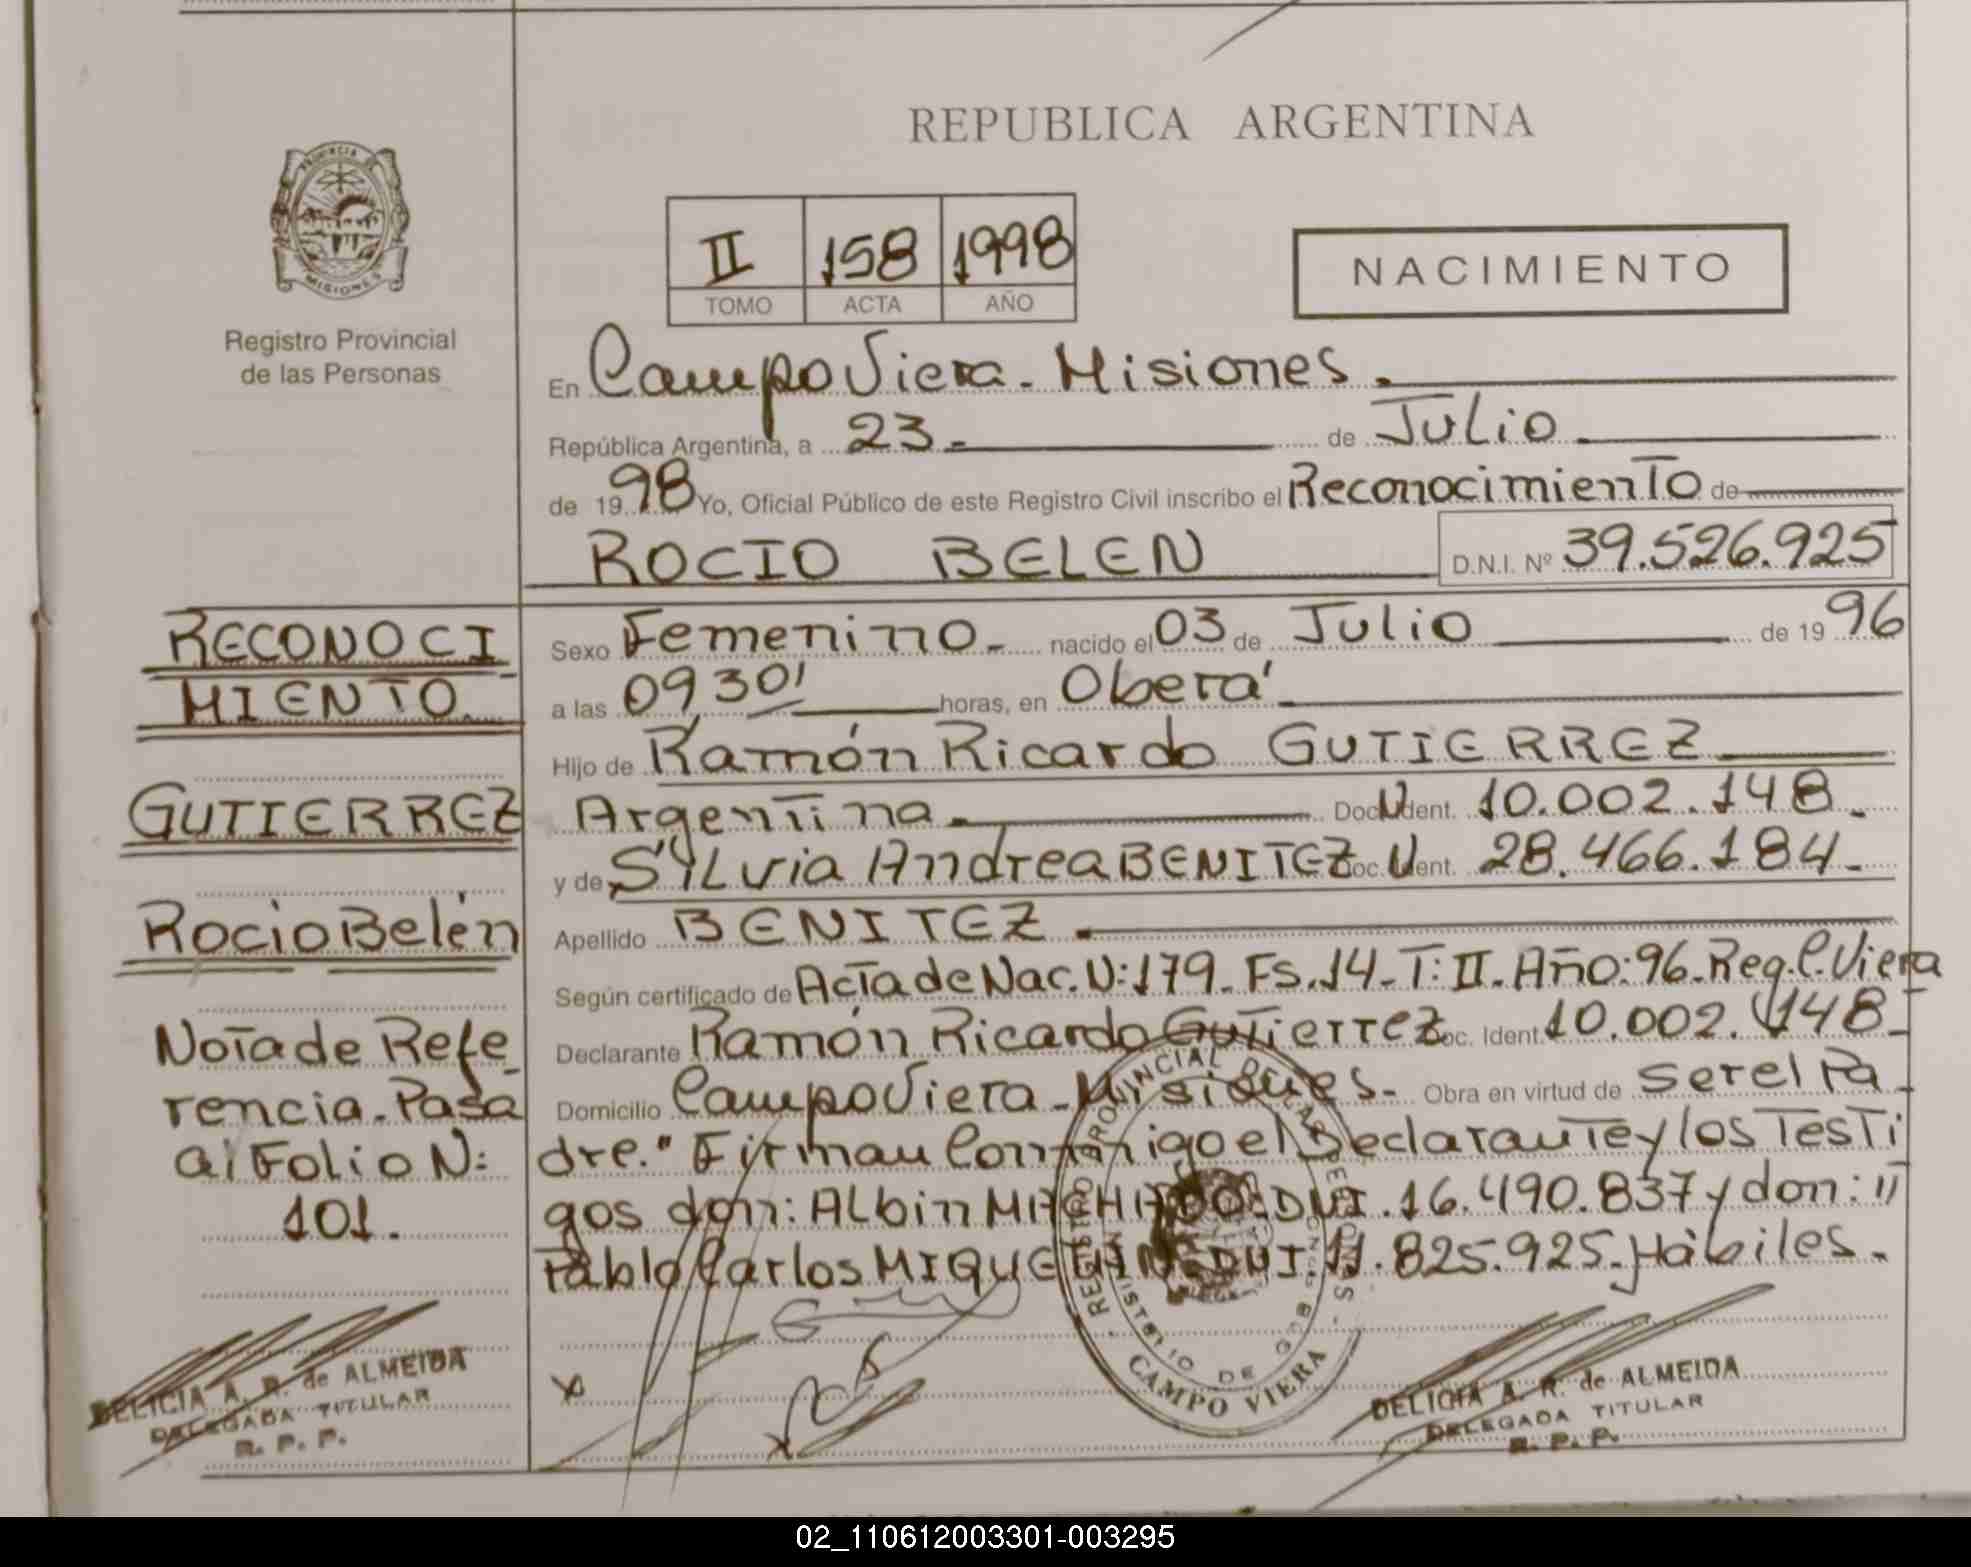 REPUBLICA ARGENTINA
PROVINCIA DE MISIONES
Registro Provincial
de las Personas
II 158 1998
TOMO ACTA AÑO
NACIMIENTO
En Campo Viera - Misiones.
República Argentina, a 23 - de Julio
de 1998 Yo, Oficial Público de este Registro Civil inscribo el Reconocimiento de
ROCIO BELEN D.N.I. Nº 39.526.925
Sexo Femenino - nacido el 03 de Julio de 1996
a las 0930' horas, en Oberá
Hijo de Ramón Ricardo GUTIERREZ
Argentina Doc. Ident. 10.002.148
y de Sylvia Andrea BENITEZ Doc. Ident. 28.466.184
Apellido BENITEZ
Según certificado de Acta de Nac. N: 179 - Fs. 14 - T: II - Año: 96 - Reg. C. Viera
Declarante Ramón Ricardo Gutierrez Doc. Ident. 10.002.148
Domicilio Campo Viera - Misiones - Obra en virtud de ser el Pa-
dre." Firman Conmigo el Declarante y los Testi
gos don: Albin MACHADO: DNI. 16.490.837 y don: "
Pablo Carlos DNI 11.825.925 - Hábiles.
RECONOCI-
MIENTO
GUTIERREZ
Rocio Belén
Nota de Refe-
rencia - Pasa
al Folio N:
101.
DELICIA A. R. de ALMEIDA
DELEGADA TITULAR
R. P. P.
REGISTRO PROVINCIAL DE LAS PERSONAS
MINISTERIO DE GOB
CAMPO VIERA
DELICIA A. R. de ALMEIDA
DELEGADA TITULAR
R. P. P.
02_110612003301-003295